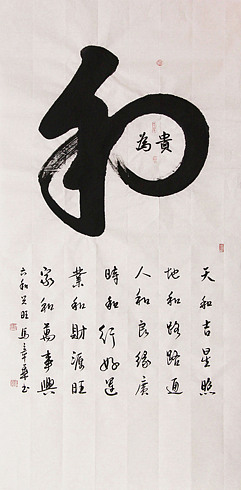 和為貴
天和吉星照
地和路路通
人和良緣廣
時和行好運
業和財源旺
家和萬事興
六和兴旺